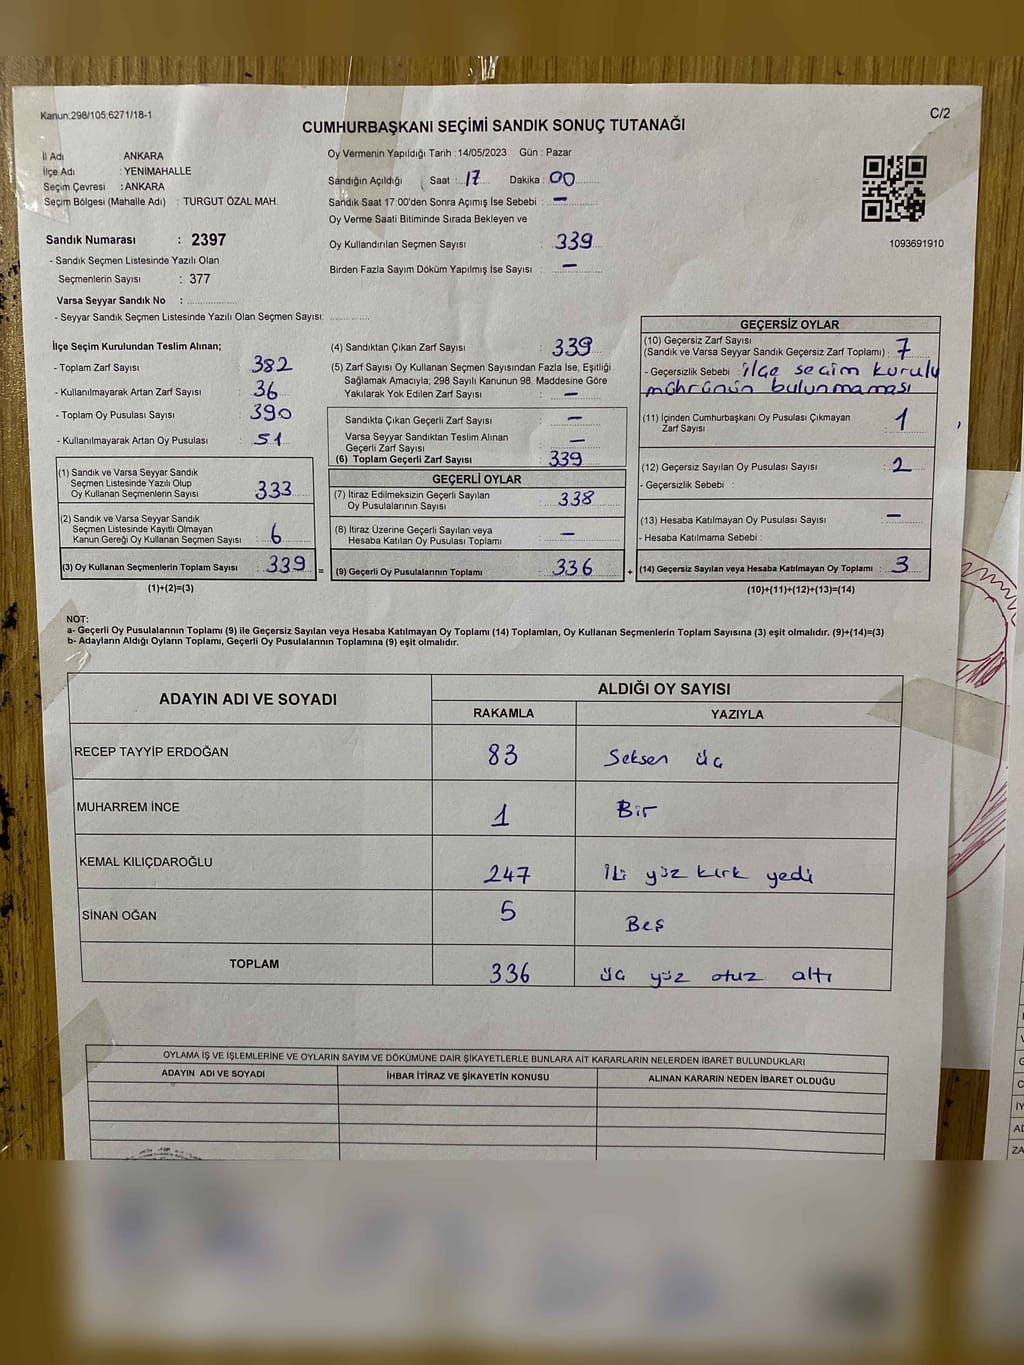 Kanun:298/105,6271/18-1
C/2
CUMHURBAŞKANI SEÇİMİ SANDIK SONUÇ TUTANAĞI
İl Adı : ANKARA
İlçe Adı : YENİMAHALLE
Seçim Çevresi : ANKARA
Seçim Bölgesi (Mahalle Adı) : TURGUT ÖZAL MAH.
Sandık Numarası : 2397
- Sandık Seçmen Listesinde Yazılı Olan
Seçmenlerin Sayısı : 377
Varsa Seyyar Sandık No :
- Seyyar Sandık Seçmen Listesinde Yazılı Olan Seçmen Sayısı:
Oy Vermenin Yapıldığı Tarih :14/05/2023 Gün : Pazar
Sandığın Açıldığı Saat : 17 Dakika : 00
Sandık Saat 17:00'den Sonra Açımış İse Sebebi : -
Oy Verme Saati Bitiminde Sırada Bekleyen ve
Oy Kullandırılan Seçmen Sayısı : 339
Birden Fazla Sayım Döküm Yapılmış İse Sayısı : -
1093691910
İlçe Seçim Kurulundan Teslim Alınan;
- Toplam Zarf Sayısı : 382
- Kullanılmayarak Artan Zarf Sayısı : 36
- Toplam Oy Pusulası Sayısı : 390
- Kullanılmayarak Artan Oy Pusulası : 51
(1) Sandık ve Varsa Seyyar Sandık
Seçmen Listesinde Yazılı Olup
Oy Kullanan Seçmenlerin Sayısı : 333
(2) Sandık ve Varsa Seyyar Sandık
Seçmen Listesinde Kayıtlı Olmayan
Kanun Gereği Oy Kullanan Seçmen Sayısı : 6
(3) Oy Kullanan Seçmenlerin Toplam Sayısı : 339 =
(1)+(2)=(3)
(4) Sandıktan Çıkan Zarf Sayısı : 339
(5) Zarf Sayısı Oy Kullanan Seçmen Sayısından Fazla İse, Eşitliği
Sağlamak Amacıyla; 298 Sayılı Kanunun 98. Maddesine Göre
Yakılarak Yok Edilen Zarf Sayısı : -
Sandıkta Çıkan Geçerli Zarf Sayısı : -
Varsa Seyyar Sandıktan Teslim Alınan
Geçerli Zarf Sayısı : -
(6) Toplam Geçerli Zarf Sayısı : 339
GEÇERLİ OYLAR
(7) İtiraz Edilmeksizin Geçerli Sayılan
Oy Pusulalarının Sayısı : 338
(8) İtiraz Üzerine Geçerli Sayılan veya
Hesaba Katılan Oy Pusulası Toplamı : -
(9) Geçerli Oy Pusulalarının Toplamı : 336 +
GEÇERSİZ OYLAR
(10) Geçersiz Zarf Sayısı
(Sandık ve Varsa Seyyar Sandık Geçersiz Zarf Toplamı) : 7
- Geçersizlik Sebebi : ilçe seçim kurulu
mührünün bulunmaması
(11) İçinden Cumhurbaşkanı Oy Pusulası Çıkmayan
Zarf Sayısı : 1
(12) Geçersiz Sayılan Oy Pusulası Sayısı : 2
- Geçersizlik Sebebi :
(13) Hesaba Katılmayan Oy Pusulası Sayısı : -
- Hesaba Katılmama Sebebi :
(14) Geçersiz Sayılan veya Hesaba Katılmayan Oy Toplamı : 3
(10)+(11)+(12)+(13)=(14)
NOT:
a- Geçerli Oy Pusulalarının Toplamı (9) ile Geçersiz Sayılan veya Hesaba Katılmayan Oy Toplamı (14) Toplamları, Oy Kullanan Seçmenlerin Toplam Sayısına (3) eşit olmalıdır. (9)+(14)=(3)
b- Adayların Aldığı Oyların Toplamı, Geçerli Oy Pusulalarının Toplamına (9) eşit olmalıdır.
ADAYIN ADI VE SOYADI
ALDIĞI OY SAYISI
RAKAMLA YAZIYLA
RECEP TAYYİP ERDOĞAN 83 Seksen üç
MUHARREM İNCE 1 Bir
KEMAL KILIÇDAROĞLU 247 İki yüz kırk yedi
SİNAN OĞAN 5 Beş
TOPLAM 336 üç yüz otuz altı
OYLAMA İŞ VE İŞLEMLERİNE VE OYLARIN SAYIM VE DÖKÜMÜNE DAİR ŞİKAYETLERLE BUNLARA AİT KARARLARIN NELERDEN İBARET BULUNDUKLARI
ADAYIN ADI VE SOYADI İHBAR İTİRAZ VE ŞİKAYETİN KONUSU ALINAN KARARIN NEDEN İBARET OLDUĞU